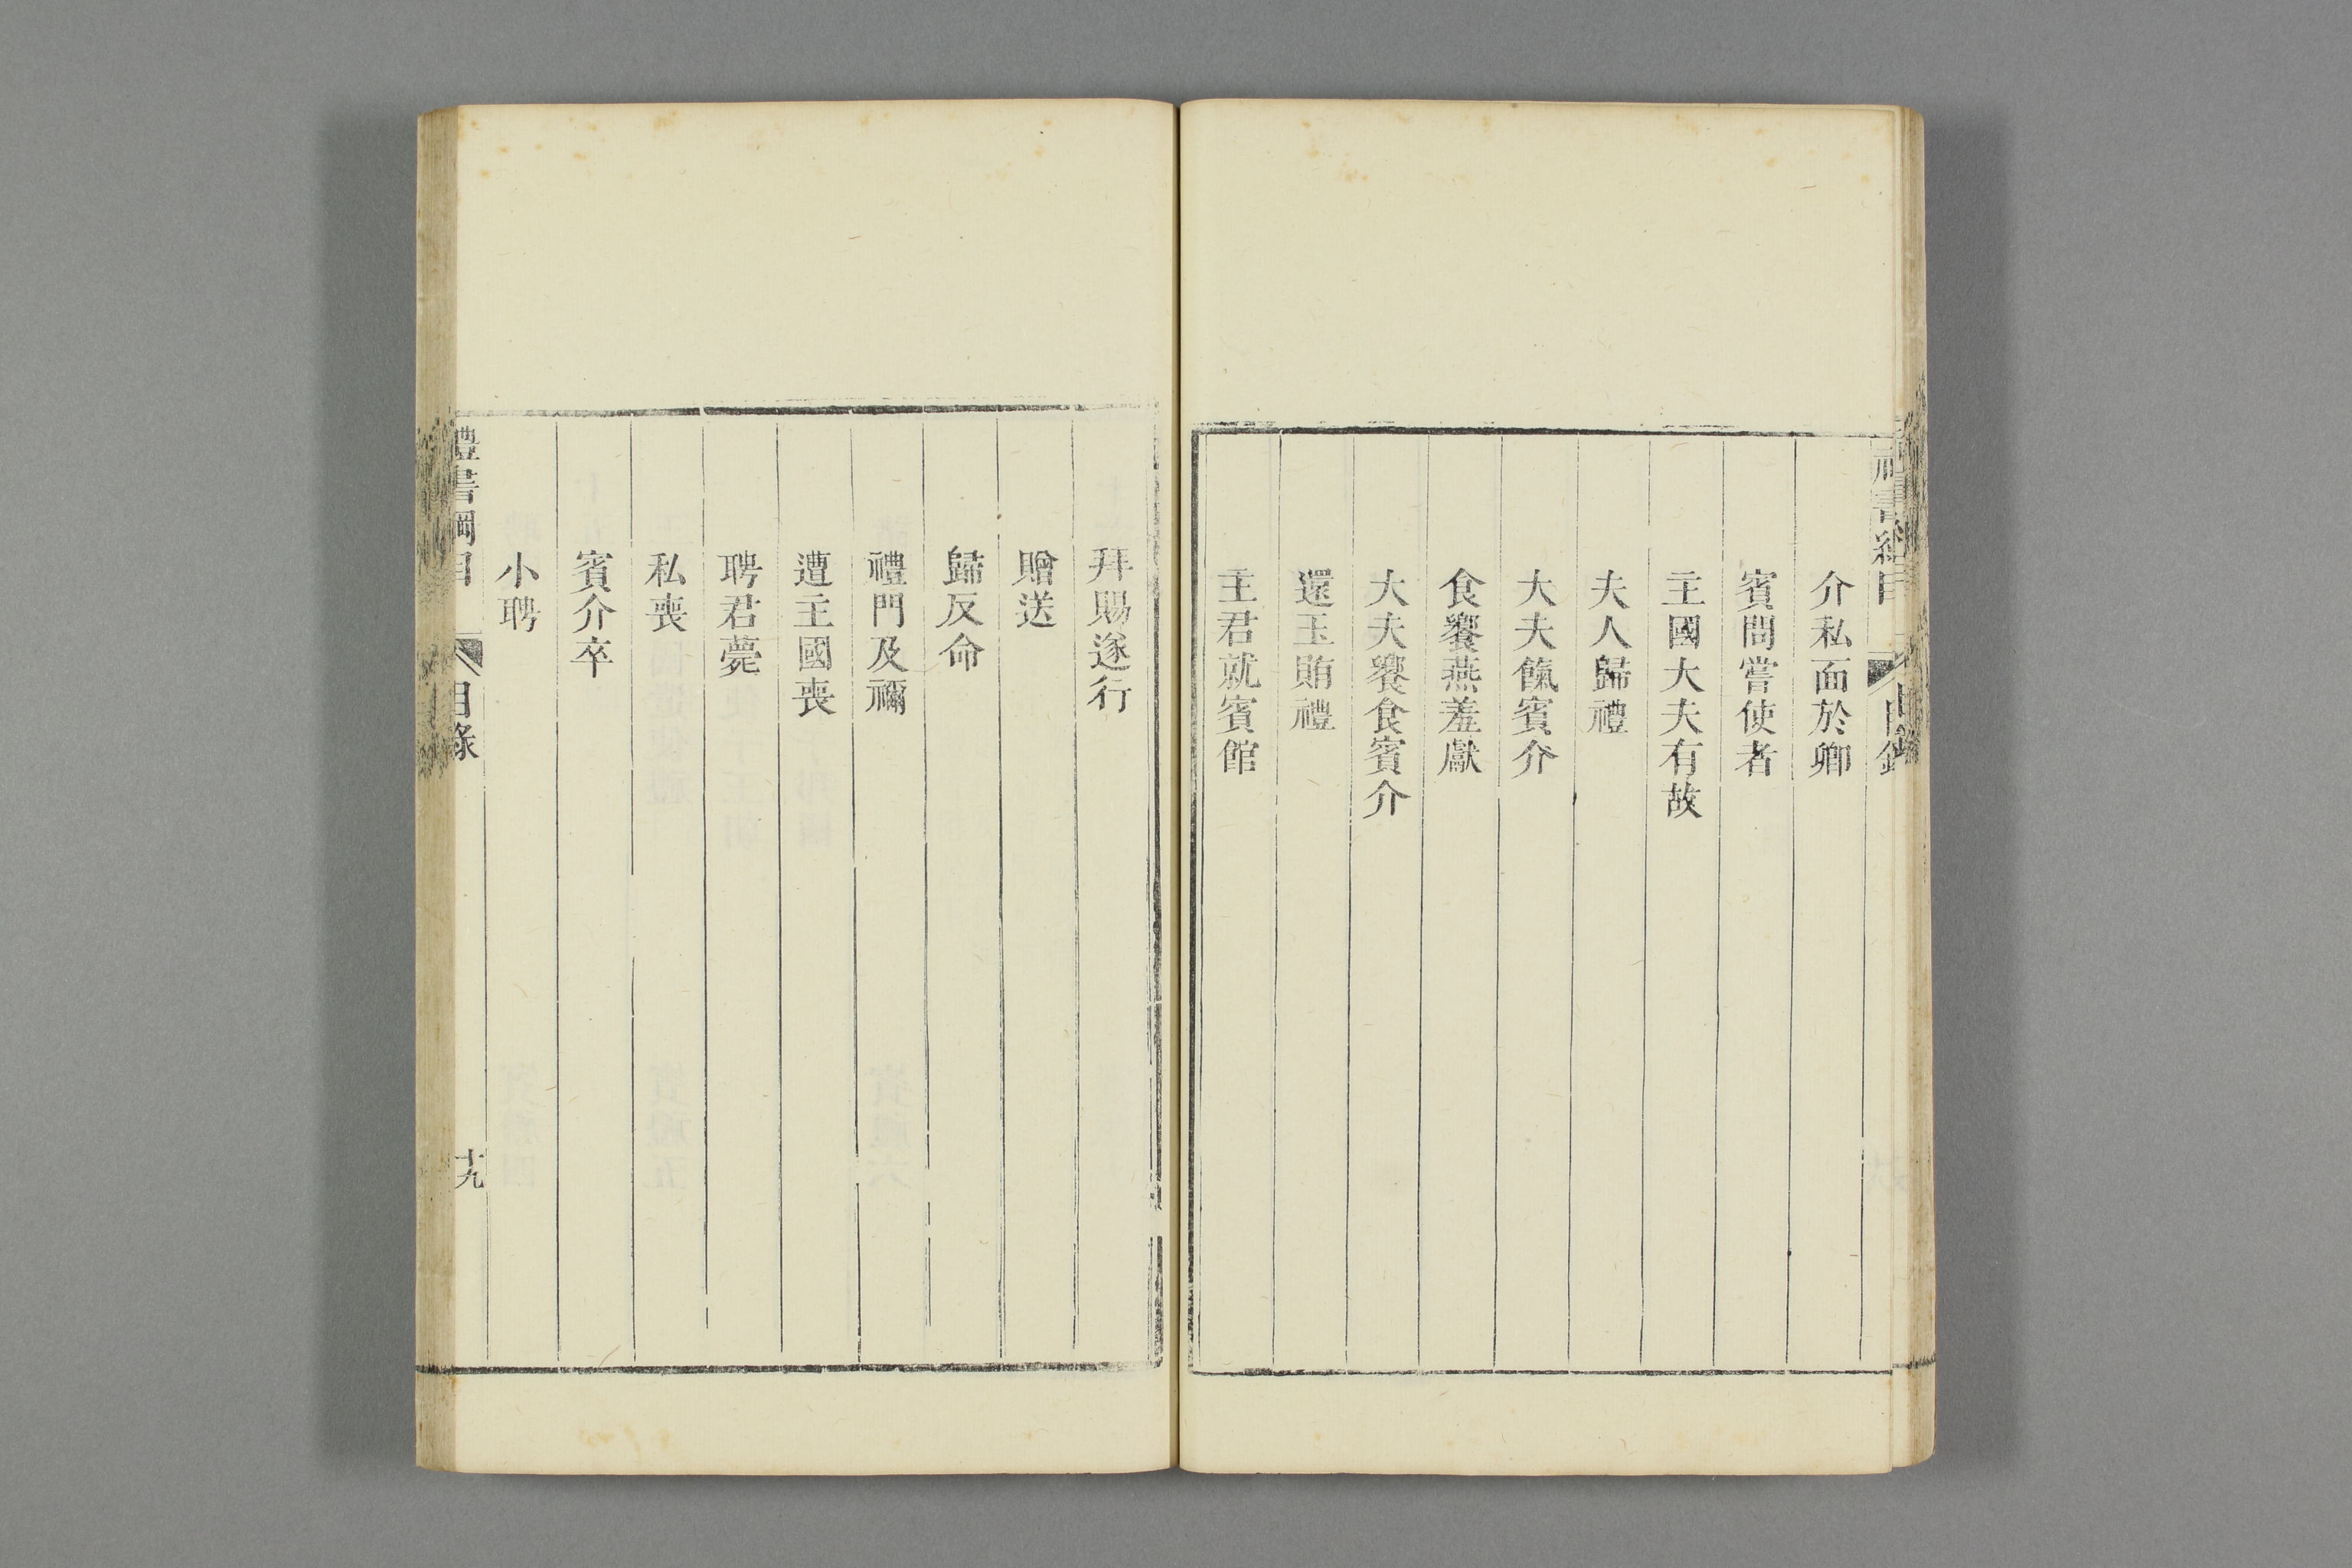 介私面於卿
賓問嘗使者
主國大夫有故
夫人歸禮
大夫餼賓介
食饗燕羞獻
大夫饗食賓介
還玉賄禮
主君就賓館
拜賜遂行
贈送
歸反命
禮門及禰
遭主國喪
聘君薨
私喪
賓介卒
小聘
禮書綱目
目錄
十九